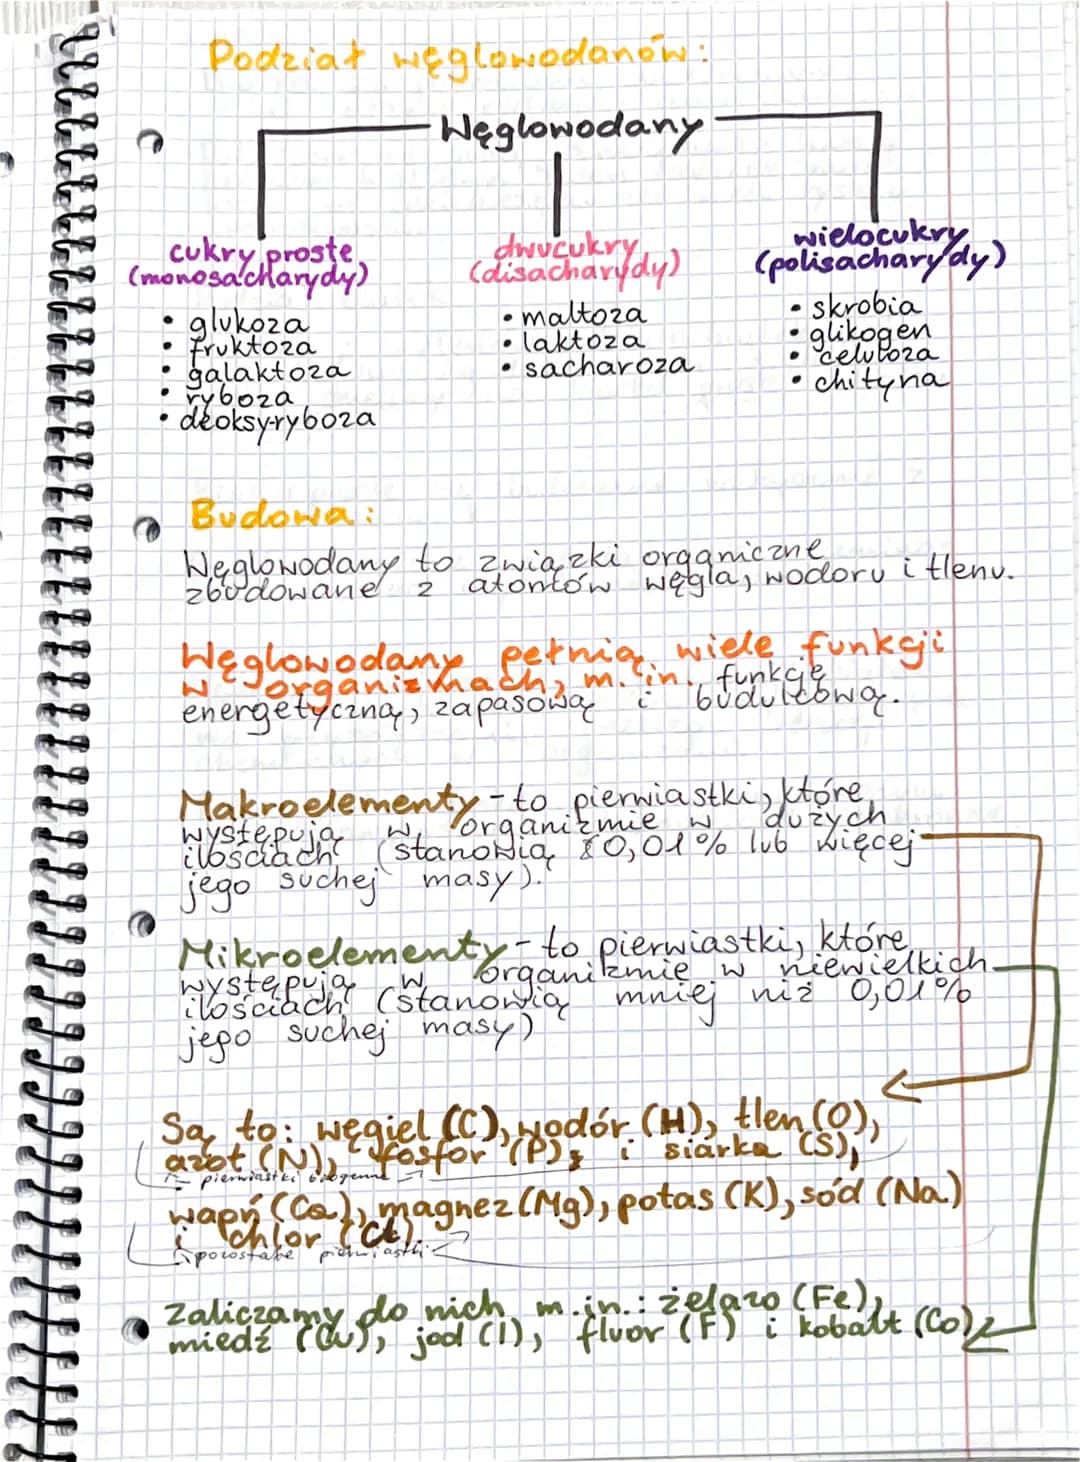 Podział węglowodanów:
Węglowodany
cukry proste
(monosacharydy)
• glukoza
• fruktoza
• galaktoza
• ryboza
• deoksyryboza
dwucukry
(disacharydy)
• maltoza
• laktoza
• sacharoza
wielocukry
(polisacharydy)
• skrobia
• glikogen
• celuloza
• chityna
Budowa:
Węglowodany to związki organiczne
zbudowane z atomów węgla, wodoru i tlenu.
Węglowodany pełnią wiele funkcji
w organizmach, m.in. funkcję
energetyczną, zapasową i budulcową.
Makroelementy - to pierwiastki, które
występują w organizmie w dużych
ilościach (stanowią 0,01% lub więcej
jego suchej masy).
Mikroelementy - to pierwiastki, które
występują w organizmie w niewielkich
ilościach (stanowią mniej niż 0,01%
jego suchej masy)
Są to: węgiel (C), wodór (H), tlen (O),
azot (N), fosfor (P), i siarka (S),
pierwiastki biogenne
wapń (Ca), magnez (Mg), potas (K), sód (Na)
i chlor (Cl).
pozostałe pierwiastki
Zaliczamy do nich m.in.: żelazo (Fe),
miedź (Cu), jod (I), fluor (F) i kobalt (Co)